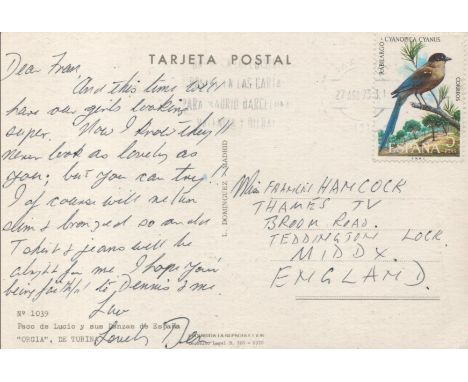 TARJETA POSTAL
Dear Fran,
And this time we'll
have our girls looking
super. Now I know they'll
never look as lovely as
you, but you can try!!
I of course will return
slim & bronzed so an old
T shirt & jeans will be
alright for me. I hope your
being faithful to Dennis & me.
Luv
Lovely Des
Nº 1039
Paco de Lucio y sus Danzas de España
"ORGIA", DE TURINA
L. DOMINGUEZ - MADRID
Depósito Legal
EN LAS CARTAS
PARA MADRID BARCELONA
27 AGO 73
RABILARGO - CYANOPICA CYANUS
CORREOS
ESPAÑA 5
Miss FRANCES HAMCOCK
THAMES TV
BROOM ROAD.
TEDDINGTON LOCK.
MIDDX.
ENGLAND.